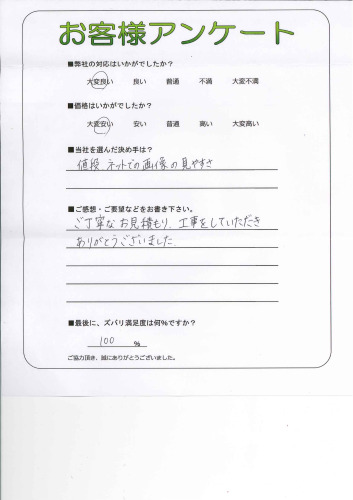 お客様アンケート
■弊社の対応はいかがでしたか？
大変良い 良い 普通 不満 大変不満
■価格はいかがでしたか？
大変安い 安い 普通 高い 大変高い
■当社を選んだ決め手は？
値段 ネットでの画像の見やすさ
■ご感想・ご要望などをお書き下さい。
ご丁寧なお見積もり、工事をしていただき
ありがとうございました
■最後に、ズバリ満足度は何%ですか？
100 %
ご協力頂き、誠にありがとうございました。